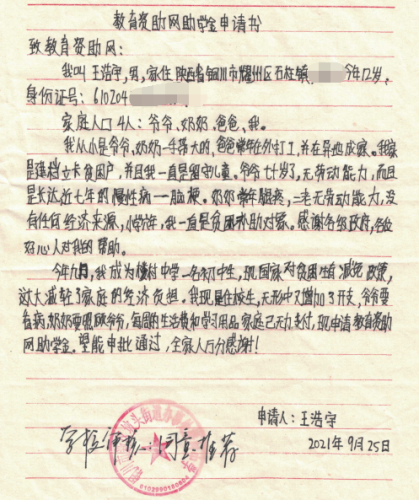 教育资助网助学金申请书
致教育资助网：
我叫王浩宇，男，家住陕西省铜川市耀州区石柱镇 今年12岁，
身份证号：610204
家庭人口4人：爷爷、奶奶、爸爸、我。
我从小是爷爷、奶奶一手带大的，爸爸常年在外打工，并在异地成家。我家
是建档立卡贫困户，并且我一直是留守儿童。爷爷七十岁了，无劳动能力，而且
是长达近七年的慢性病一脑梗。奶奶常年腿疼，二老无劳动能力，没
有任何经济来源，小学六年，我一直是贫困补助对象。感谢各级政府，各位
好心人对我的帮助。
今年九月，我成为 中学一名初中生，现国家对贫困生有减免政策，
这大大减轻了家庭的经济负担。我现是住校生，无形中又增加了开支，爷爷要
看病，奶奶要照顾爷爷，每周的生活费和学习用品家庭已无力支付，现申请教育资助
网助学金。望能审批通过，全家人万分感谢！
申请人：王浩宇
2021年9月25日
学校审核：同意推荐